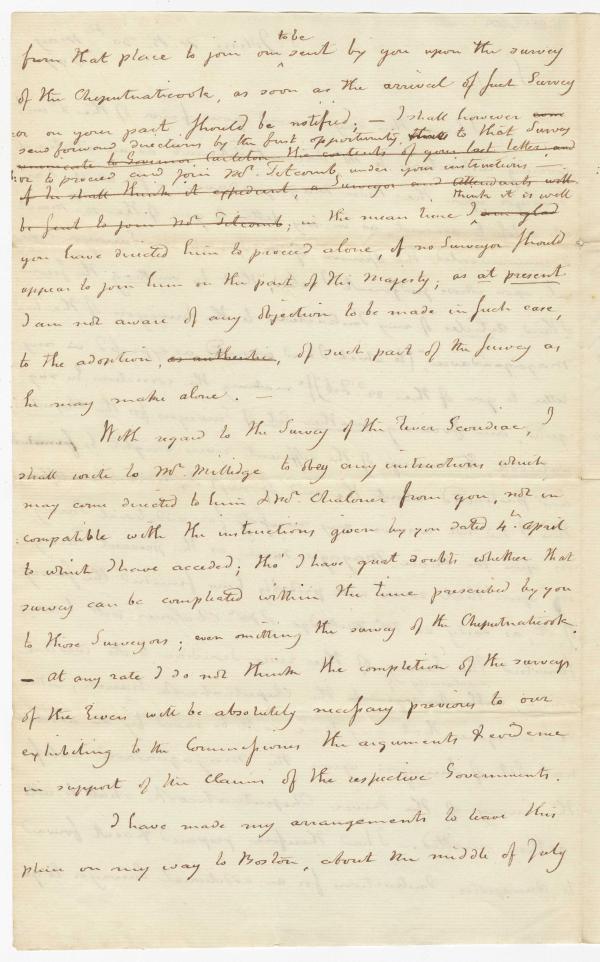 to be
from that place to join one ^ sent by you upon the survey
of the Cheputnaticook, as soon as the arrival of such Survey
or on your part should be notified; — I shall however
send forward directions by the first opportunity to that Survey
communicate to Governor Carleton the contents of your last letter, and
or to proceed and join Mr. Titcomb, under your instructions —
if he shall think it expedient, a Surveyor and attendants will
think it is well
be sent to join Mr. Titcomb; in the mean time I ^ am glad
you have directed him to proceed alone, if no Surveyor should
appear to join him on the part of His Majesty; as at present
I am not aware of any objection to be made in such case,
to the adoption, as authentic, of such part of the survey as
he may make alone. —
With regard to the Survey of the River Scoudiac, I
shall write to Mr. Millidge to obey any instructions which
may come directed to him & Mr. Chaloner from you, not in
:compatible with the instructions given by you dated 4th. April
to which I have acceded; tho' I have great doubts whether that
survey can be compleated within the time prescribed by you
to those Surveyors; even omitting the survey of the Cheputnaticook.
— At any rate I do not think the completion of the surveys
of the Rivers will be absolutely necessary previous to our
exhibiting to the Commissioners the arguments & evidence
in support of the Claims of the respective Governments.
I have made my arrangements to leave this
place on my way to Boston, about the middle of July